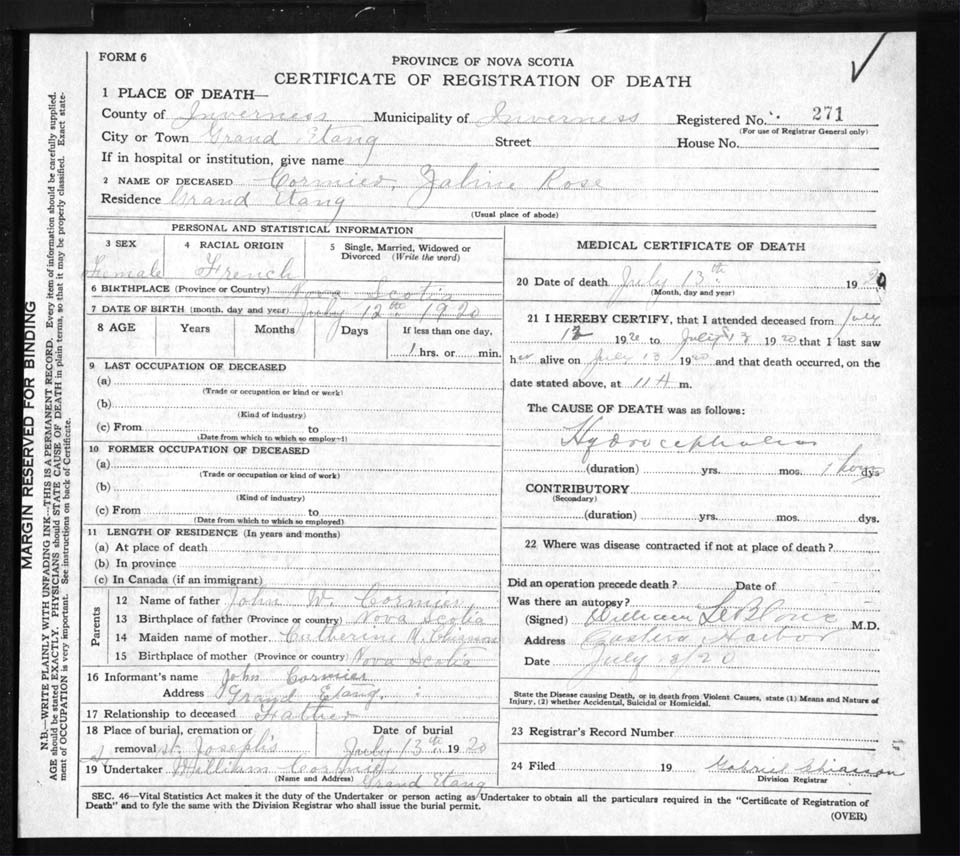 FORM 6
PROVINCE OF NOVA SCOTIA
CERTIFICATE OF REGISTRATION OF DEATH
1 PLACE OF DEATH—
County of Inverness Municipality of Inverness Registered No. 271
(For use of Registrar General only)
City or Town Grand Etang Street House No.
If in hospital or institution, give name
2 NAME OF DECEASED Cormier, Rose
Residence Grand Etang
(Usual place of abode)
PERSONAL AND STATISTICAL INFORMATION
3 SEX 4 RACIAL ORIGIN 5 Single, Married, Widowed or Divorced (Write the word)
Female French
6 BIRTHPLACE (Province or Country) Nova Scotia
7 DATE OF BIRTH (month, day and year) July 12th 1920
8 AGE Years Months Days If less than one day,
1 hrs. or min.
9 LAST OCCUPATION OF DECEASED
(a)
(Trade or occupation or kind or work)
(b)
(Kind of industry)
(c) From to
(Date from which to which so employ-1)
10 FORMER OCCUPATION OF DECEASED
(a)
(Trade or occupation or kind of work)
(b)
(Kind of industry)
(c) From to
(Date from which to which so employed)
11 LENGTH OF RESIDENCE (In years and months)
(a) At place of death
(b) In province
(c) In Canada (if an immigrant)
Parents
12 Name of father John W. Cormier
13 Birthplace of father (Province or country) Nova Scotia
14 Maiden name of mother Catherine
15 Birthplace of mother (Province or country) Nova Scotia
16 Informant's name John Cormier
Address Grand Etang.
17 Relationship to deceased Father
18 Place of burial, cremation or Date of burial
removal St. Joseph's July 13th 1920
19 Undertaker William Cormier
(Name and Address) Grand Etang
MEDICAL CERTIFICATE OF DEATH
20 Date of death July 13th 1920
(Month, day and year)
21 I HEREBY CERTIFY, that I attended deceased from July
12 1920 to July 13 1920 that I last saw
her alive on July 13 1920 and that death occurred, on the
date stated above, at 11 A m.
The CAUSE OF DEATH was as follows:
Hydrocephalus
(duration) yrs. mos. dys.
CONTRIBUTORY
(Secondary)
(duration) yrs. mos. dys.
22 Where was disease contracted if not at place of death?
Did an operation precede death? Date of
Was there an autopsy?
(Signed) William LeBlanc M.D.
Address Eastern Harbor
Date July 13/20
State the Disease causing Death, or in death from Violent Causes, state (1) Means and Nature of
Injury, (2) whether Accidental, Suicidal or Homicidal.
23 Registrar's Record Number
24 Filed 19 Gabriel Chiasson
Division Registrar
SEC. 46—Vital Statistics Act makes it the duty of the Undertaker or person acting as Undertaker to obtain all the particulars required in the "Certificate of Registration of
Death" and to fyle the same with the Division Registrar who shall issue the burial permit.
(OVER)
MARGIN RESERVED FOR BINDING
N.B.—WRITE PLAINLY WITH UNFADING INK—THIS IS A PERMANENT RECORD. Every item of information should be carefully supplied.
AGE should be stated EXACTLY. PHYSICIANS should STATE CAUSE OF DEATH in plain terms, so that it may be properly classified. Exact state-
ment of OCCUPATION is very important. See instructions on back of Certificate.